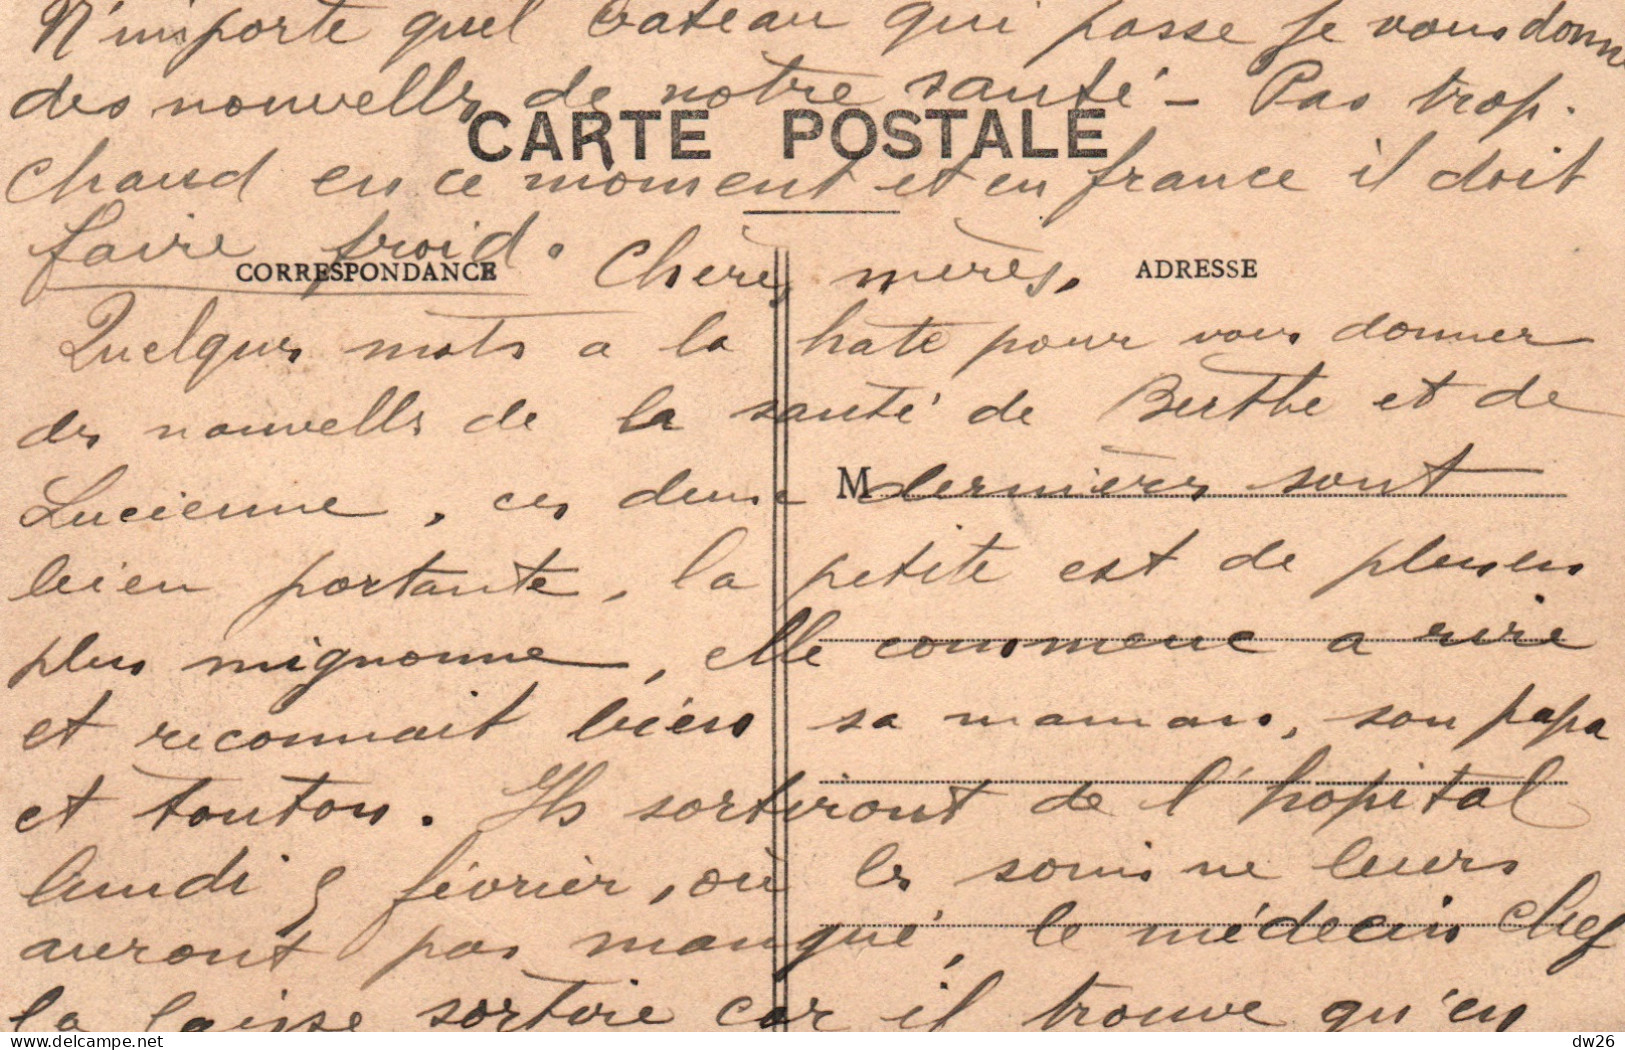 N'importe quel bateau qui passe je vous donne
des nouvells de notre santé - Pas trop.
CARTE POSTALE
chaud en ce moment et en france il doit
faire froid.
CORRESPONDANCE
Chères mères,
ADRESSE
Quelqus mots a la hate pour vous donner
des nouvells de la santé de Berthe et de
Lucienne, ces deux M dernières sont
bien portante, la petite est de plus en
plus mignonne, elle commenc a rire
et reconnait bien sa maman, son papa
et tonton. Ils sortiront de l'hopital
lundi 5 février, où les soins ne leurs
auront pas manqué, le médecin chef
la laisse sortire car il trouve qu'en
delcampe.net
dw26